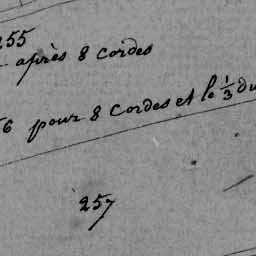 255
après 8 cordes
6 pour 8 Cordes et le 1/3 du
257